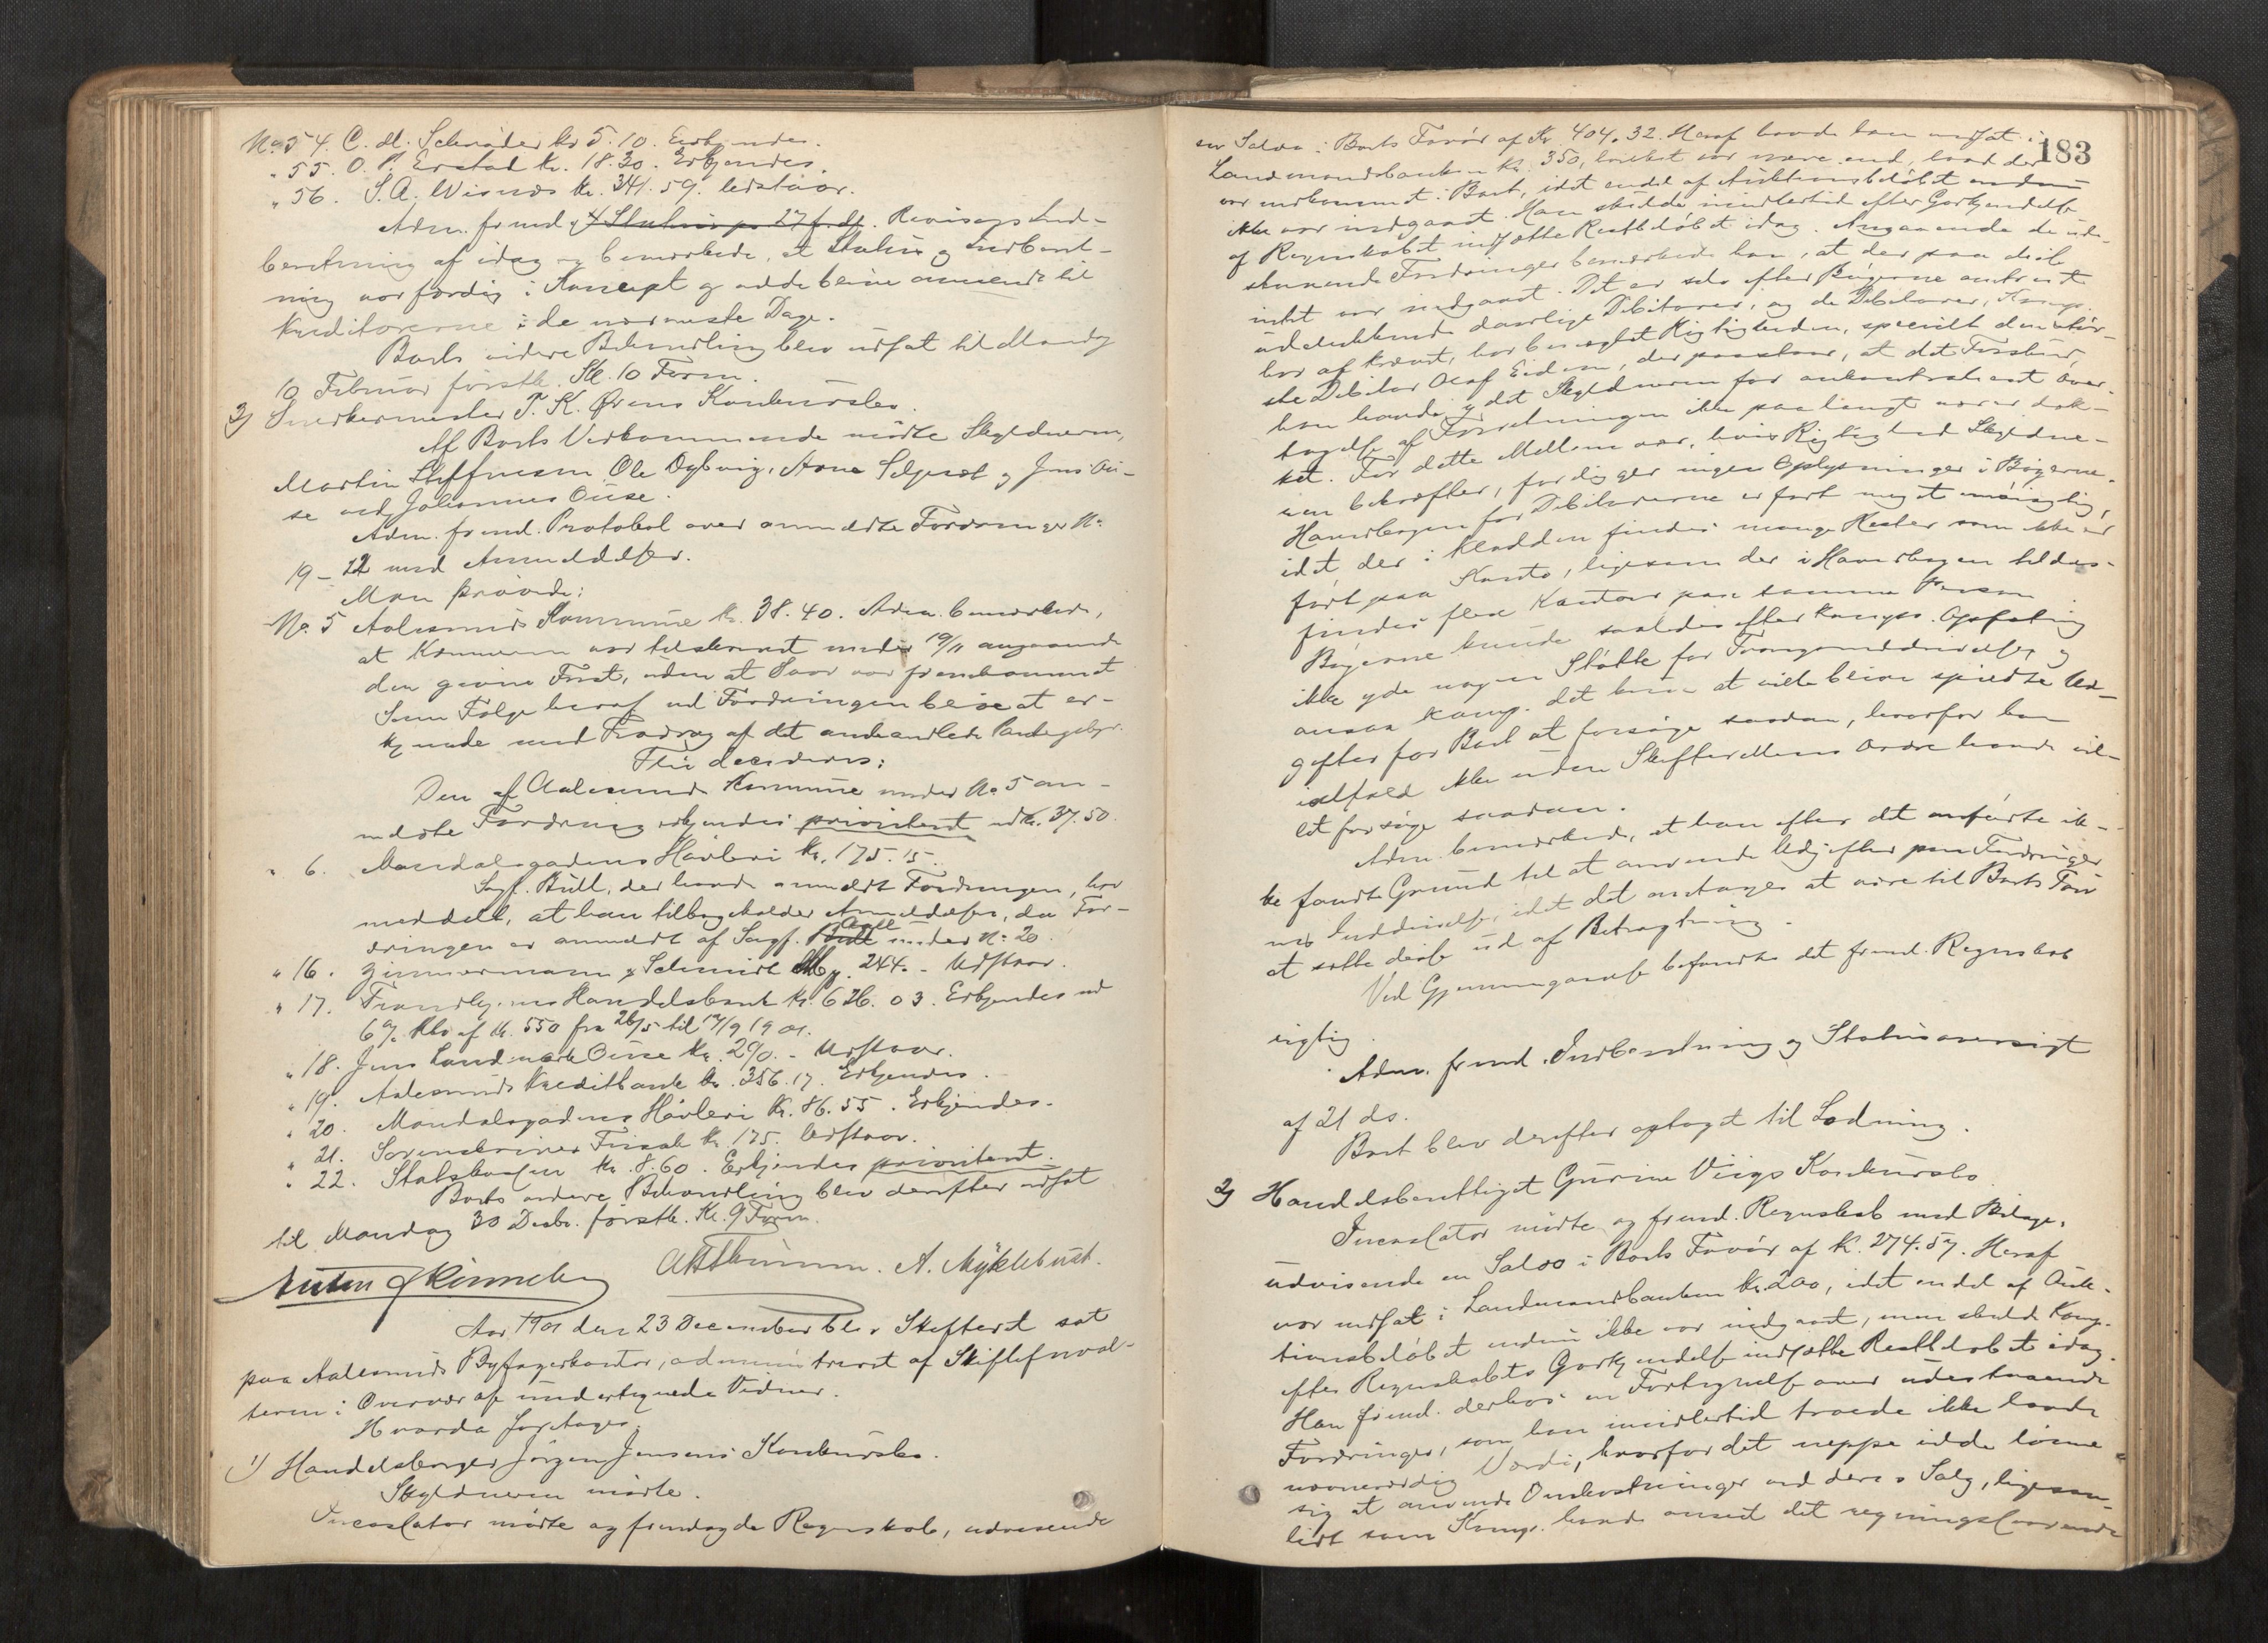 No 54. C. M. Schrøder kr 5.10. Erkjendes.
" 55. O. P. Erstad kr. 18.30. Erkjendes.
" 56. S. A. Wisnæs kr. 341.59. Udstaar.
Adm. fremd. Status pr 27 f. Md. Revisors Ind-
beretning af idag og bemærkede, at Status og Indberet-
ning var færdig i Koncept og vilde blive omsendt til
Kreditorerne i de nærmeste Dage.
Boets videre Behandling blev udsat til Mandag
10 Februar førstk. Kl. 10 Form.
3) Snedkermester T. K. Ørens Konkursbo.
Af Boets Vedkommende mødte Skyldneren,
Martin Steffensen, Ole Dybvig, Arne Seljeset og Jens Ou-
se ved Johannes Ouse.
Adm. fremd. Protokol over anmeldte Fordringer No
19 - 22 med Anmeldelser.
Man prøvede:
No. 5 Aalesunds Kommune kr. 38.40. Adm. bemærkede,
at Kæmneren var tilskrevet under 19/11 angaaende
den givne Frist, uden at Svar var fremkommet
Som Følge heraf vil Fordringen blive at er-
kjende med Fradrag af det omhandlede Pantegebyr.
Thi decideres:
Den af Aalesunds Kommune under No 5 an-
meldte Fordring erkjendes prioriteret med kr. 37.50.
" 6. Mandalsgadens Høvleri kr. 175.15.
Sagf. Bull, der havde anmeldt Fordringen, har
meddelt, at han tilbageholder Anmeldelsen, da For-
dringen er anmeldt af Sagf. under No 20.
" 16. Zimmermann & Schmidt 244.- Udstaar.
" 17. Trondhjems Handelsbank kr. 626.03. Erkjendes med
6% Rte af kr. 550 fra 26/5 til 14/9 1901.
" 18. Jens Landmark Ouse kr. 290.- Udstaar.
" 19. Aalesunds Kreditbank kr. 356.17. Erkjendes.
" 20. Mandalsgadens Høvleri kr. 86.55. Erkjendes.
" 21. Sorenskriver Frisak kr. 175. Udstaar.
" 22. Statskassen kr. 8.60. Erkjendes prioriteret.
Boets videre Behandling blev derefter udsat
til Mandag 30 Decbr. førstk. Kl. 9 Form.
A. Myklebust.
Aar 1901 den 23 December blev Skifteret sat
paa Aalesunds Byfogedkontor, administreret af Skifteforval-
teren i Overvær af undertegnede Vidner.
Hvorda foretoges:
1) Handelsborger Jørgen Jensens Konkursbo.
Skyldneren mødte.
Incassator mødte og fremlagde Regnskab, udvisende
183
en Saldo i Boets Favør af Kr 404.32. Heraf havde han indsat i
Landmandsbanken kr. 350, hvilket var mere end, hvad der
var indkommet i Boet, idet endel af Auktionsbeløbet endnu
ikke var indgaaet. Han skulde imidlertid efter Godkjendelse
af Regnskabet indsætte Restbeløbet idag. Angaaende de ude-
staaende Fordringer bemærkede han, at der paa disse
intet var indgaaet. Det er selv efter Bøgerne omtrent
udelukkende daarlige Debitorer, og de Debitorer, Komp.
har af krævet, har benægtet Rigtigheden, specielt den stør-
ste Debitor Olaf Eidem, der paastaar, at det Forskud,
han havde ydet Skyldneren før ankontraheret Over-
tagelse af Forretningen ikke paa langt nær er dæk-
ket. For dette Mellemvær, hvis Rigtighed Skyldne-
ren bekræfter, foreligger ingen Oplysninger i Bøgerne.
Hovedbogen for Debitorerne er ført meget unøiagtig,
idet der i Kladden findes mange Rester som ikke er
ført paa Konto, ligesom der i Hovedbogen tildels
findes flere Kontoer paa samme Person.
Bøgerne kunde saaledes efter Komps. Opfatning
ikke yde nogen Støtte for Tvangsinddrivelse, og
ansaa Komp. det kun at ville blive spildte Ud-
gifter for Boet at forsøge saadan, hvorfor han
ialfald ikke uden Skifterettens Ordre havde vil-
let forsøge saadan.
Adm. bemærkede, at han efter det anførte ik-
ke fandt Grund til at anvende Udgifter paa Fordringer-
nes Inddrivelse, idet det antages at være til Boets Tarv
at sætte disse ud af Betragtning.
Ved Gjennemgaaelse befandtes det fremd. Regnskab
rigtig.
Adm. fremd. Indberetning og Statusoversigt
af 21 ds.
Boet blev derefter optaget til Lodning.
2) Handelsberettiget Gurine Viigs Konkursbo.
Incassator mødte og fremd. Regnskab med Bilage,
udvisende en Saldo i Boets Favør af kr. 274.57. Heraf
var indsat i Landmandsbanken kr. 200, idet endel af Auk-
tionsbeløbet endnu ikke var indgaaet, men skulde Komp.
efter Regnskabets Godkjendelse indsætte Restbeløbet idag.
Han fremd. derhos en Fortegnelse over udestaaende
Fordringer, som han imidlertid troede ikke havde
nævneværdig Værdi, hvorfor det neppe vilde lønne
sig at anvende Omkostninger ved deres Salg, ligesaa-
lidt som Komp. havde anseet det regningssvarende